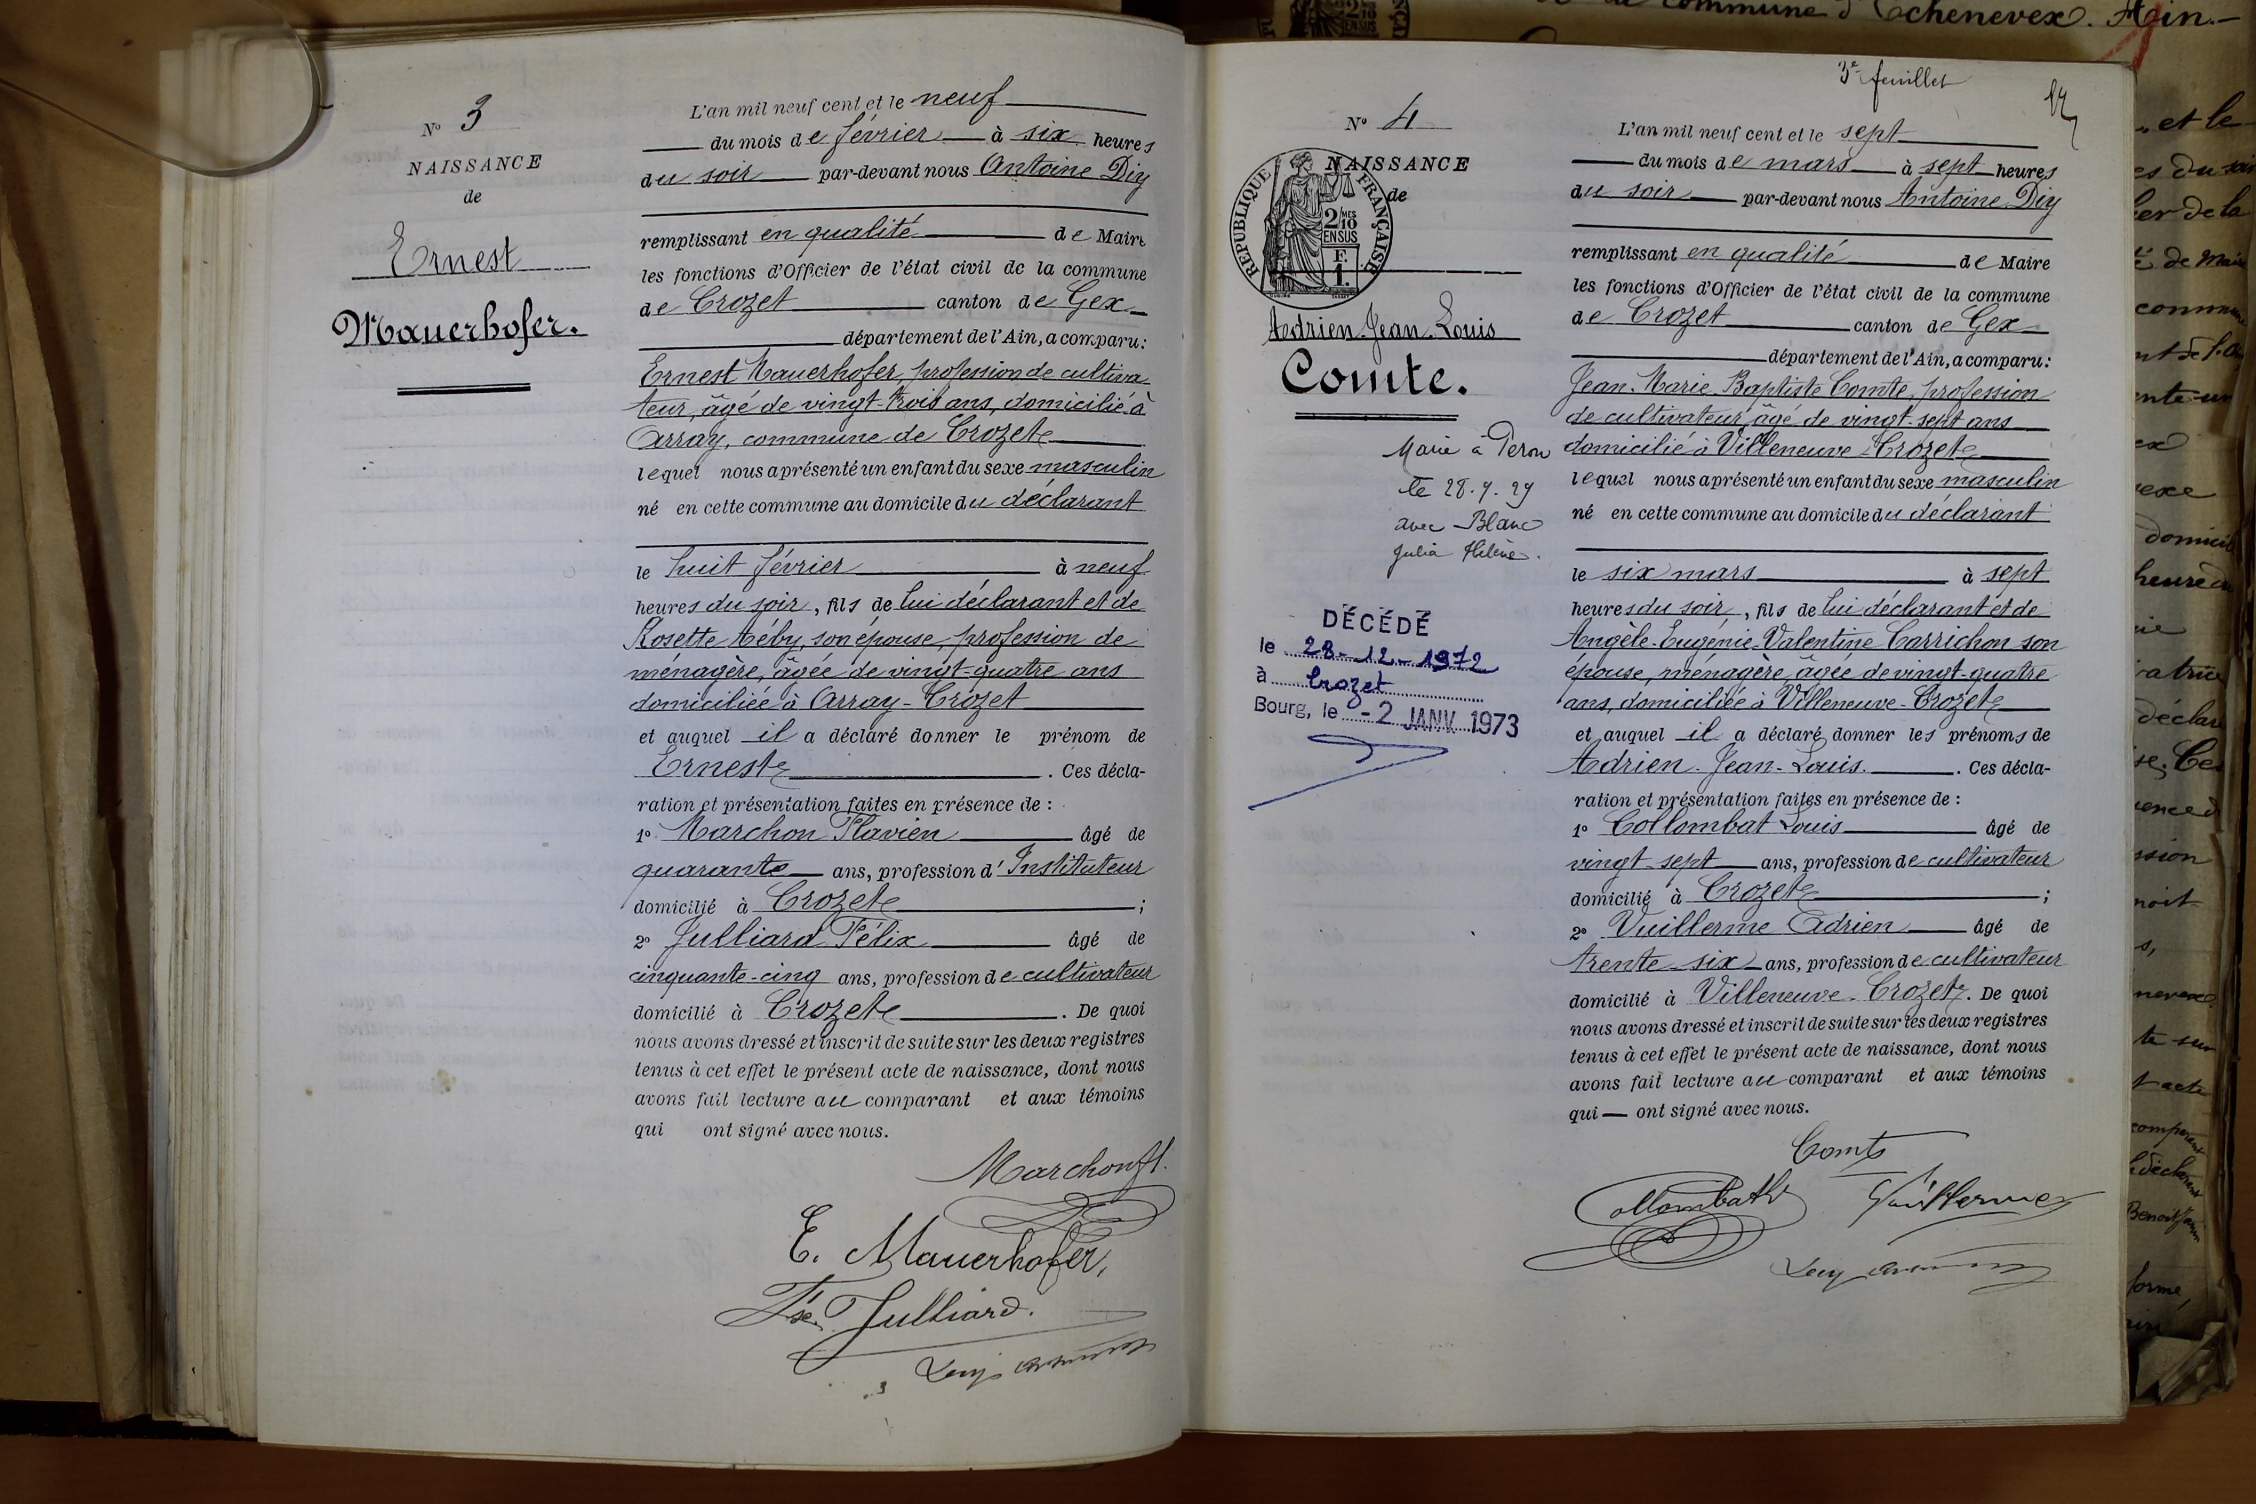 N° 3
NAISSANCE
de
Ernest
Mauerhofer.
L'an mil neuf cent et le neuf
du mois de février à six heures
du soir par-devant nous Antoine Diy
remplissant en qualité de Maire
les fonctions d'Officier de l'état civil de la commune
de Crozet canton de Gex
département de l'Ain, a comparu :
Ernest Mauerhofer, profession de cultiva-
teur, âgé de vingt-trois ans, domicilié à
Array, commune de Crozet
lequel nous a présenté un enfant du sexe masculin
né en cette commune au domicile du déclarant
le huit février à neuf
heures du soir, fils de lui déclarant et de
Rosette Aéby, son épouse, profession de
ménagère, âgée de vingt-quatre ans
domiciliée à Array-Crozet
et auquel il a déclaré donner le prénom de
Ernest . Ces décla-
ration et présentation faites en présence de :
1° Marchon Flavien âgé de
quarante ans, profession d'Instituteur
domicilié à Crozet ;
2° Julliard Félix âgé de
cinquante-cinq ans, profession de cultivateur
domicilié à Crozet . De quoi
nous avons dressé et inscrit de suite sur les deux registres
tenus à cet effet le présent acte de naissance, dont nous
avons fait lecture au comparant et aux témoins
qui ont signé avec nous.
Marchon fl.
E. Mauerhofer,
Julliard.
3e feuillet
N° 4
NAISSANCE
de
RÉPUBLIQUE FRANÇAISE
2/10MES
EN SUS
F.
1.
Adrien-Jean-Louis
Comte.
Marié à Peron
avec Blanc
Julia Hélène.
DÉCÉDÉ
le 28-12-1972
à Crozet
Bourg, le -2 JANV. 1973
L'an mil neuf cent et le sept
du mois de mars à sept heures
du soir par-devant nous Antoine Diy
remplissant en qualité de Maire
les fonctions d'Officier de l'état civil de la commune
de Crozet canton de Gex
département de l'Ain, a comparu :
Jean-Marie-Baptiste Comte, profession
de cultivateur, âgé de vingt-sept ans
domicilié à Villeneuve-Crozet
lequel nous a présenté un enfant du sexe masculin
né en cette commune au domicile du déclarant
le six mars à sept
heures du soir, fils de lui déclarant et de
Angèle-Eugénie-Valentine Carrichon son
épouse, ménagère, âgée de vingt-quatre
ans, domiciliée à Villeneuve-Crozet
et auquel il a déclaré donner les prénoms de
Adrien-Jean-Louis. . Ces décla-
ration et présentation faites en présence de :
1° Collombat Louis âgé de
vingt-sept ans, profession de cultivateur
domicilié à Crozet ;
2° Vuillerme Adrien âgé de
trente-six ans, profession de cultivateur
domicilié à Villeneuve-Crozet. De quoi
nous avons dressé et inscrit de suite sur les deux registres
tenus à cet effet le présent acte de naissance, dont nous
avons fait lecture au comparant et aux témoins
qui ont signé avec nous.
Comte
Vuillerme
commune d'Echenevex. Ain.
et le